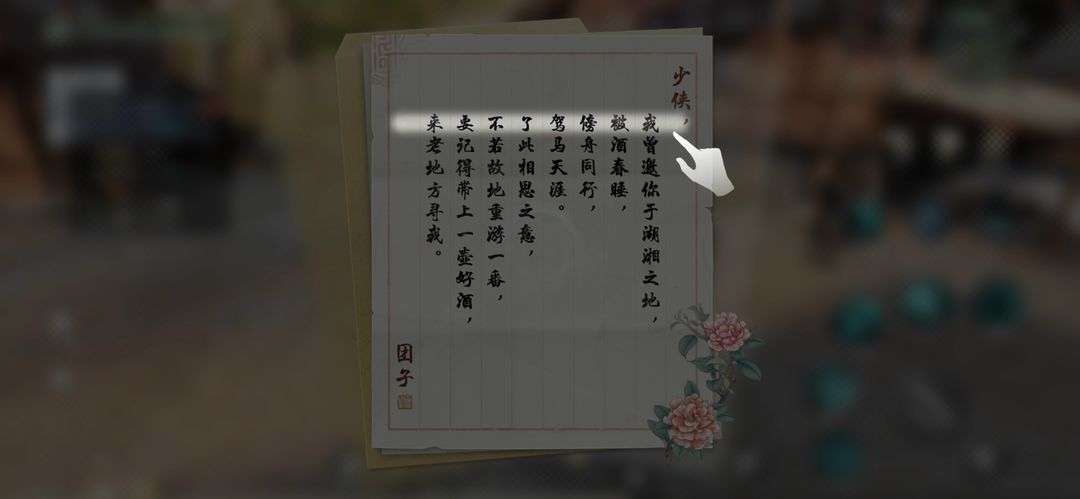 少侠，
我曾邀你于湖湘之地，
被酒春睡，
傍舟同行，
驾马天涯。
了此相思之意，
不若故地重游一番，
要记得带上一壶好酒，
来老地方寻我。
团子